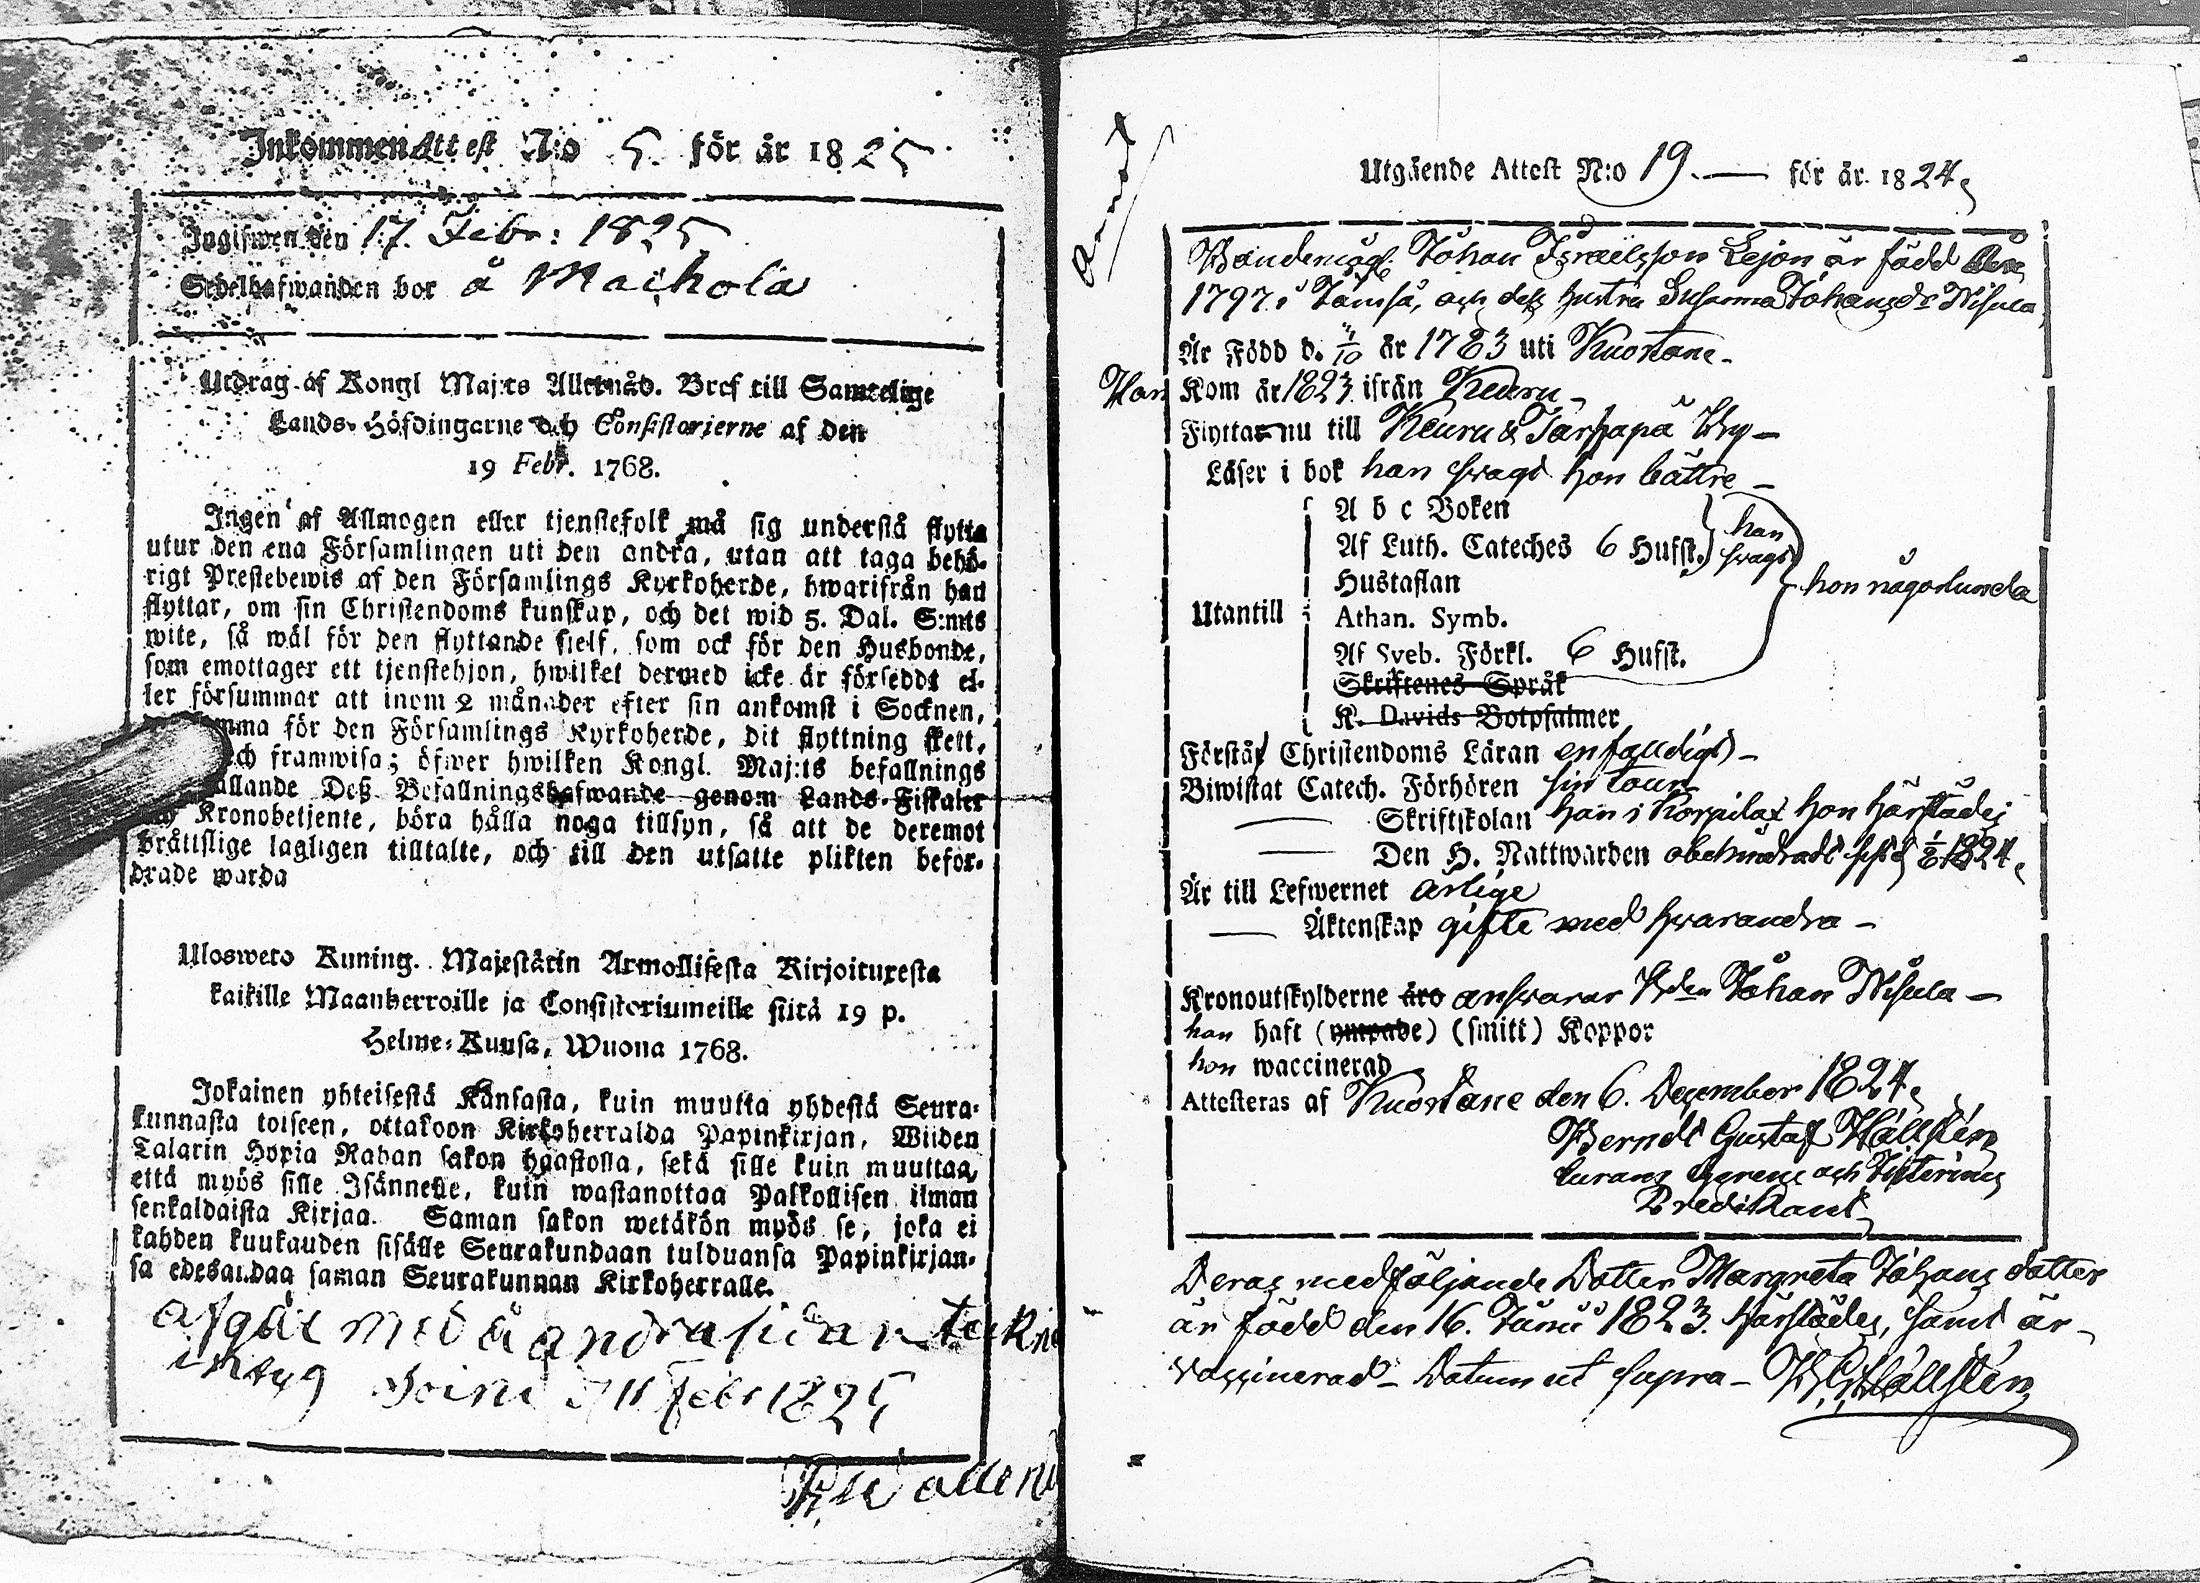 Inkommen Attest N:o 5. för år 1825
Ingifwen den 17. Febr: 1825
Sedelhafwanden bor å Maihola
Utdrag af Kongl Maj:ts Allernåd. Bref till Samtelige
Lands-Höfdingarne och Consistorierne af den
19 Febr. 1768.
Ingen af Allmogen eller tjenstefolk må sig understå flytta
utur den ena Församlingen uti den andra, utan att taga behö-
rigt Prestebewis af den Församlings Kyrkoherde, hwarifrån han
flyttar, om sin Christendoms kunskap, och det wid 5. Dal. S:mts
wite, så wäl för den flyttande sielf, som ock för den Husbonde,
som emottager ett tjenstehjon, hwilket dermed icke är försedt el-
ler försummar att inom 2 månader efter sin ankomst i Socknen,
mma för den Församlings Kyrkoherde, dit flyttning skett,
ch framwisa; öfwer hwilken Kongl. Maj:ts befallnings
allande Deß Befallningshafwande genom Lands-Fiskaler
Kronobetjente, böra hålla noga tillsyn, så att de deremot
bråttslige lagligen tilltalte, och till den utsatte plikten befor-
drade warda
Ulosweto Kuning. Majestätin Armollisesta Kirjoituxesta
kaikille Maanherroille ja Consistoriumeille siitä 19 p.
Helme-Kuusa, Wuona 1768.
Jokainen yhteisestä Kansasta, kuin muutta yhdestä Seura-
kunnasta toiseen, ottakoon Kirkoherralda Papinkirjan, Wiiden
Talarin Hopia Rahan sakon haastolla, sekä sille kuin muuttaa,
että myös sille Isännelle, kuin wastanottaa Palkollisen ilman
senkaldaista Kirjaa. Saman sakon wetäkön myös se, joka ei
kahden kuukauden sisälle Seurakundaan tulduansa Papinkirjan-
sa edesandaa saman Seurakunnan Kirkoherralle.
afgår med å andra sidan teckna
intyg 11 Febr 1825
Utgående Attest N:o 19. — för år 1824,
Johan Israelsson Lejon är född
1797 i Jämsä, och deß hustru Susanna Johansdr Nisula
Är Född d. 4/10 år 1783 uti Kuortane-
Han Kom år 1823 ifrån Keuru -
Flyttar nu till Keuru & By -
Läser i bok han svagt hon bättre -
A b c Boken
Af Luth. Cateches 6 Hufst. han svagt
Hustaflan hon någorlunda
Utantill Athan. Symb.
Af Sveb. Förkl. 6 Hufst.
Skriftenes Språk
K. Davids Botpsalmer
Förstår Christendoms Läran enfalldigt -
Biwistat Catech. Förhören sin tour
Skriftskolan han i Korpilax hon härstädes
Den H. Nattwarden obehindradt sist 1824,
Är till Lefwernet ärlige
Äktenskap gifte med hvarandra -
Kronoutskylderne äro ansvarar Johan Nisula -
han haft (ympade) (smitt) Koppor
hon waccinerad
Attesteras af Kuortane den 6. December 1824,
Berndt Gustaf Hällsten
Curam Gerens och
Predikant
Deras medföljande Dotter Margreta Johans dotter
är född den 16. Junii 1823. härstädes, samt är
vaccinerad - Datum ut supra - B G Hällsten